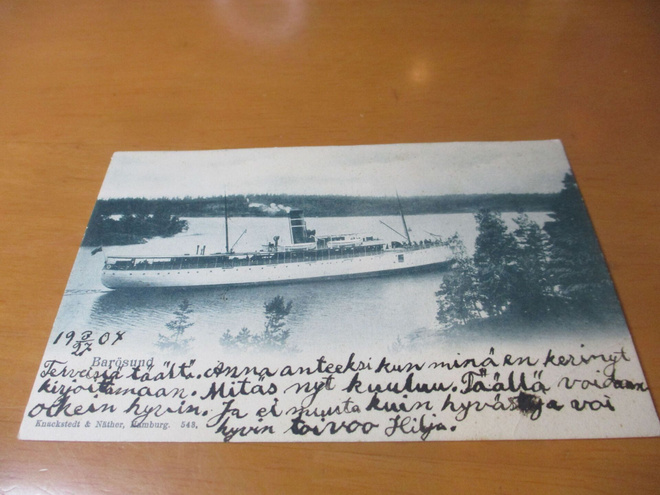 19 3/27 04
Barösund
Terveisiä täältä. Anna anteeksi kun minä en kerinyt
kirjoittamaan. Mitäs nyt kuuluu. Täällä voidaan
oikein hyvin. Ja ei muuta kuin hyvästja voi
Knackstedt & Näther, Hamburg. 543,
hyvin toivoo Hilja.